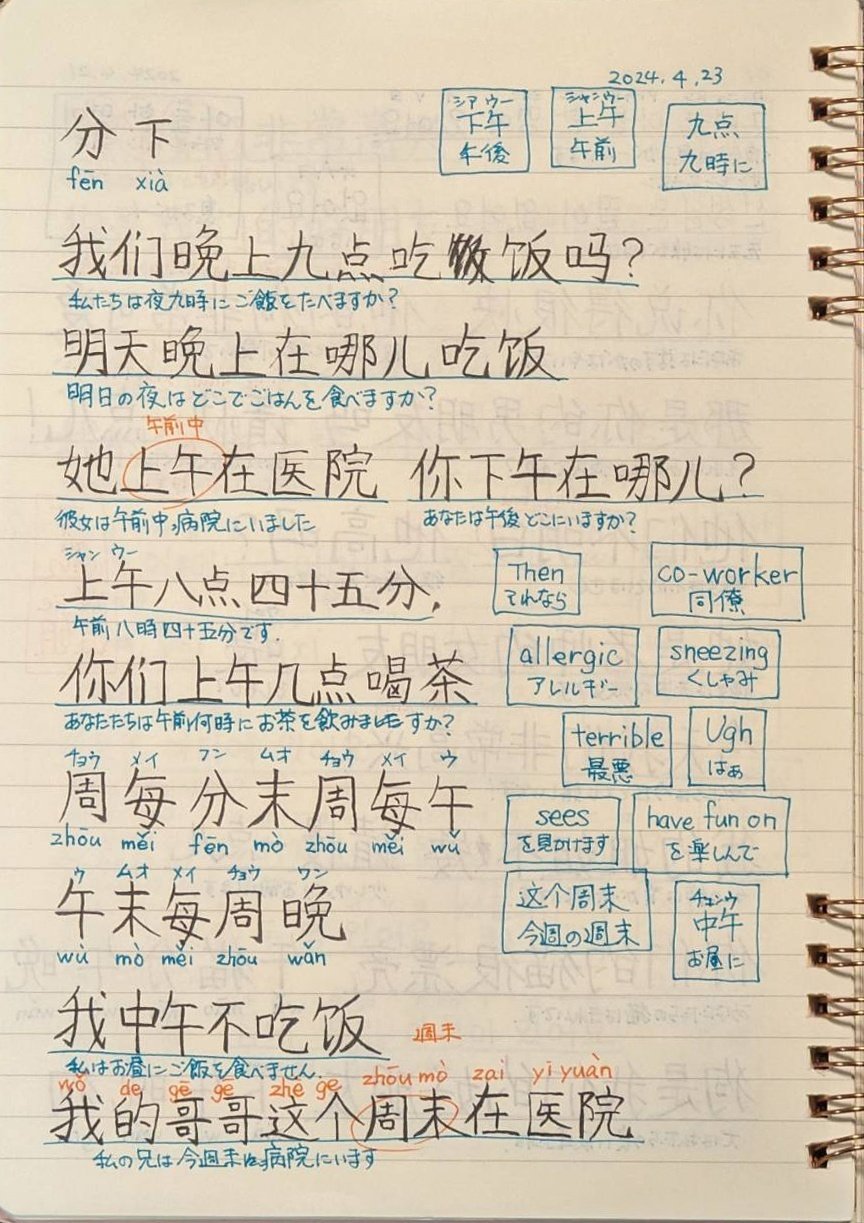 2024.4.23
シア ウー
下午
午後
シャンウー
上午
午前
九点
九時に
分 下
fēn xià
我们晚上九点吃饭吗?
私たちは夜九時にご飯をたべますか?
明天晚上在哪儿吃饭
明日の夜はどこでごはんを食べますか?
午前中
她上午在医院 你下午在哪儿?
彼女は午前中病院にいました
あなたは午後どこにいますか?
シャン ウー
上午八点四十五分.
午前八時四十五分です.
Then
それなら
co-worker
同僚
你们上午几点喝茶
あなたたちは午前何時にお茶を飲みますか?
allergic
アレルギー
sneezing
くしゃみ
terrible
最悪
Ugh
はぁ
チョウ メイ フン ムオ チョウ メイ ウ
周每分末周每午
zhōu měi fēn mò zhōu měi wǔ
sees
を見かけます
have fun on
を楽しんで
ウ ムオ メイ チョウ ワン
午末每周晚
wǔ mò měi zhōu wǎn
这个周末
今週の週末
チュンウ
中午
お昼に
我中午不吃饭
私はお昼にご飯を食べません.
週末
wǒ de gē gē zhè ge zhōu mò zai yī yuàn
我的哥哥这个周末在医院
私の兄は今週末は病院にいます